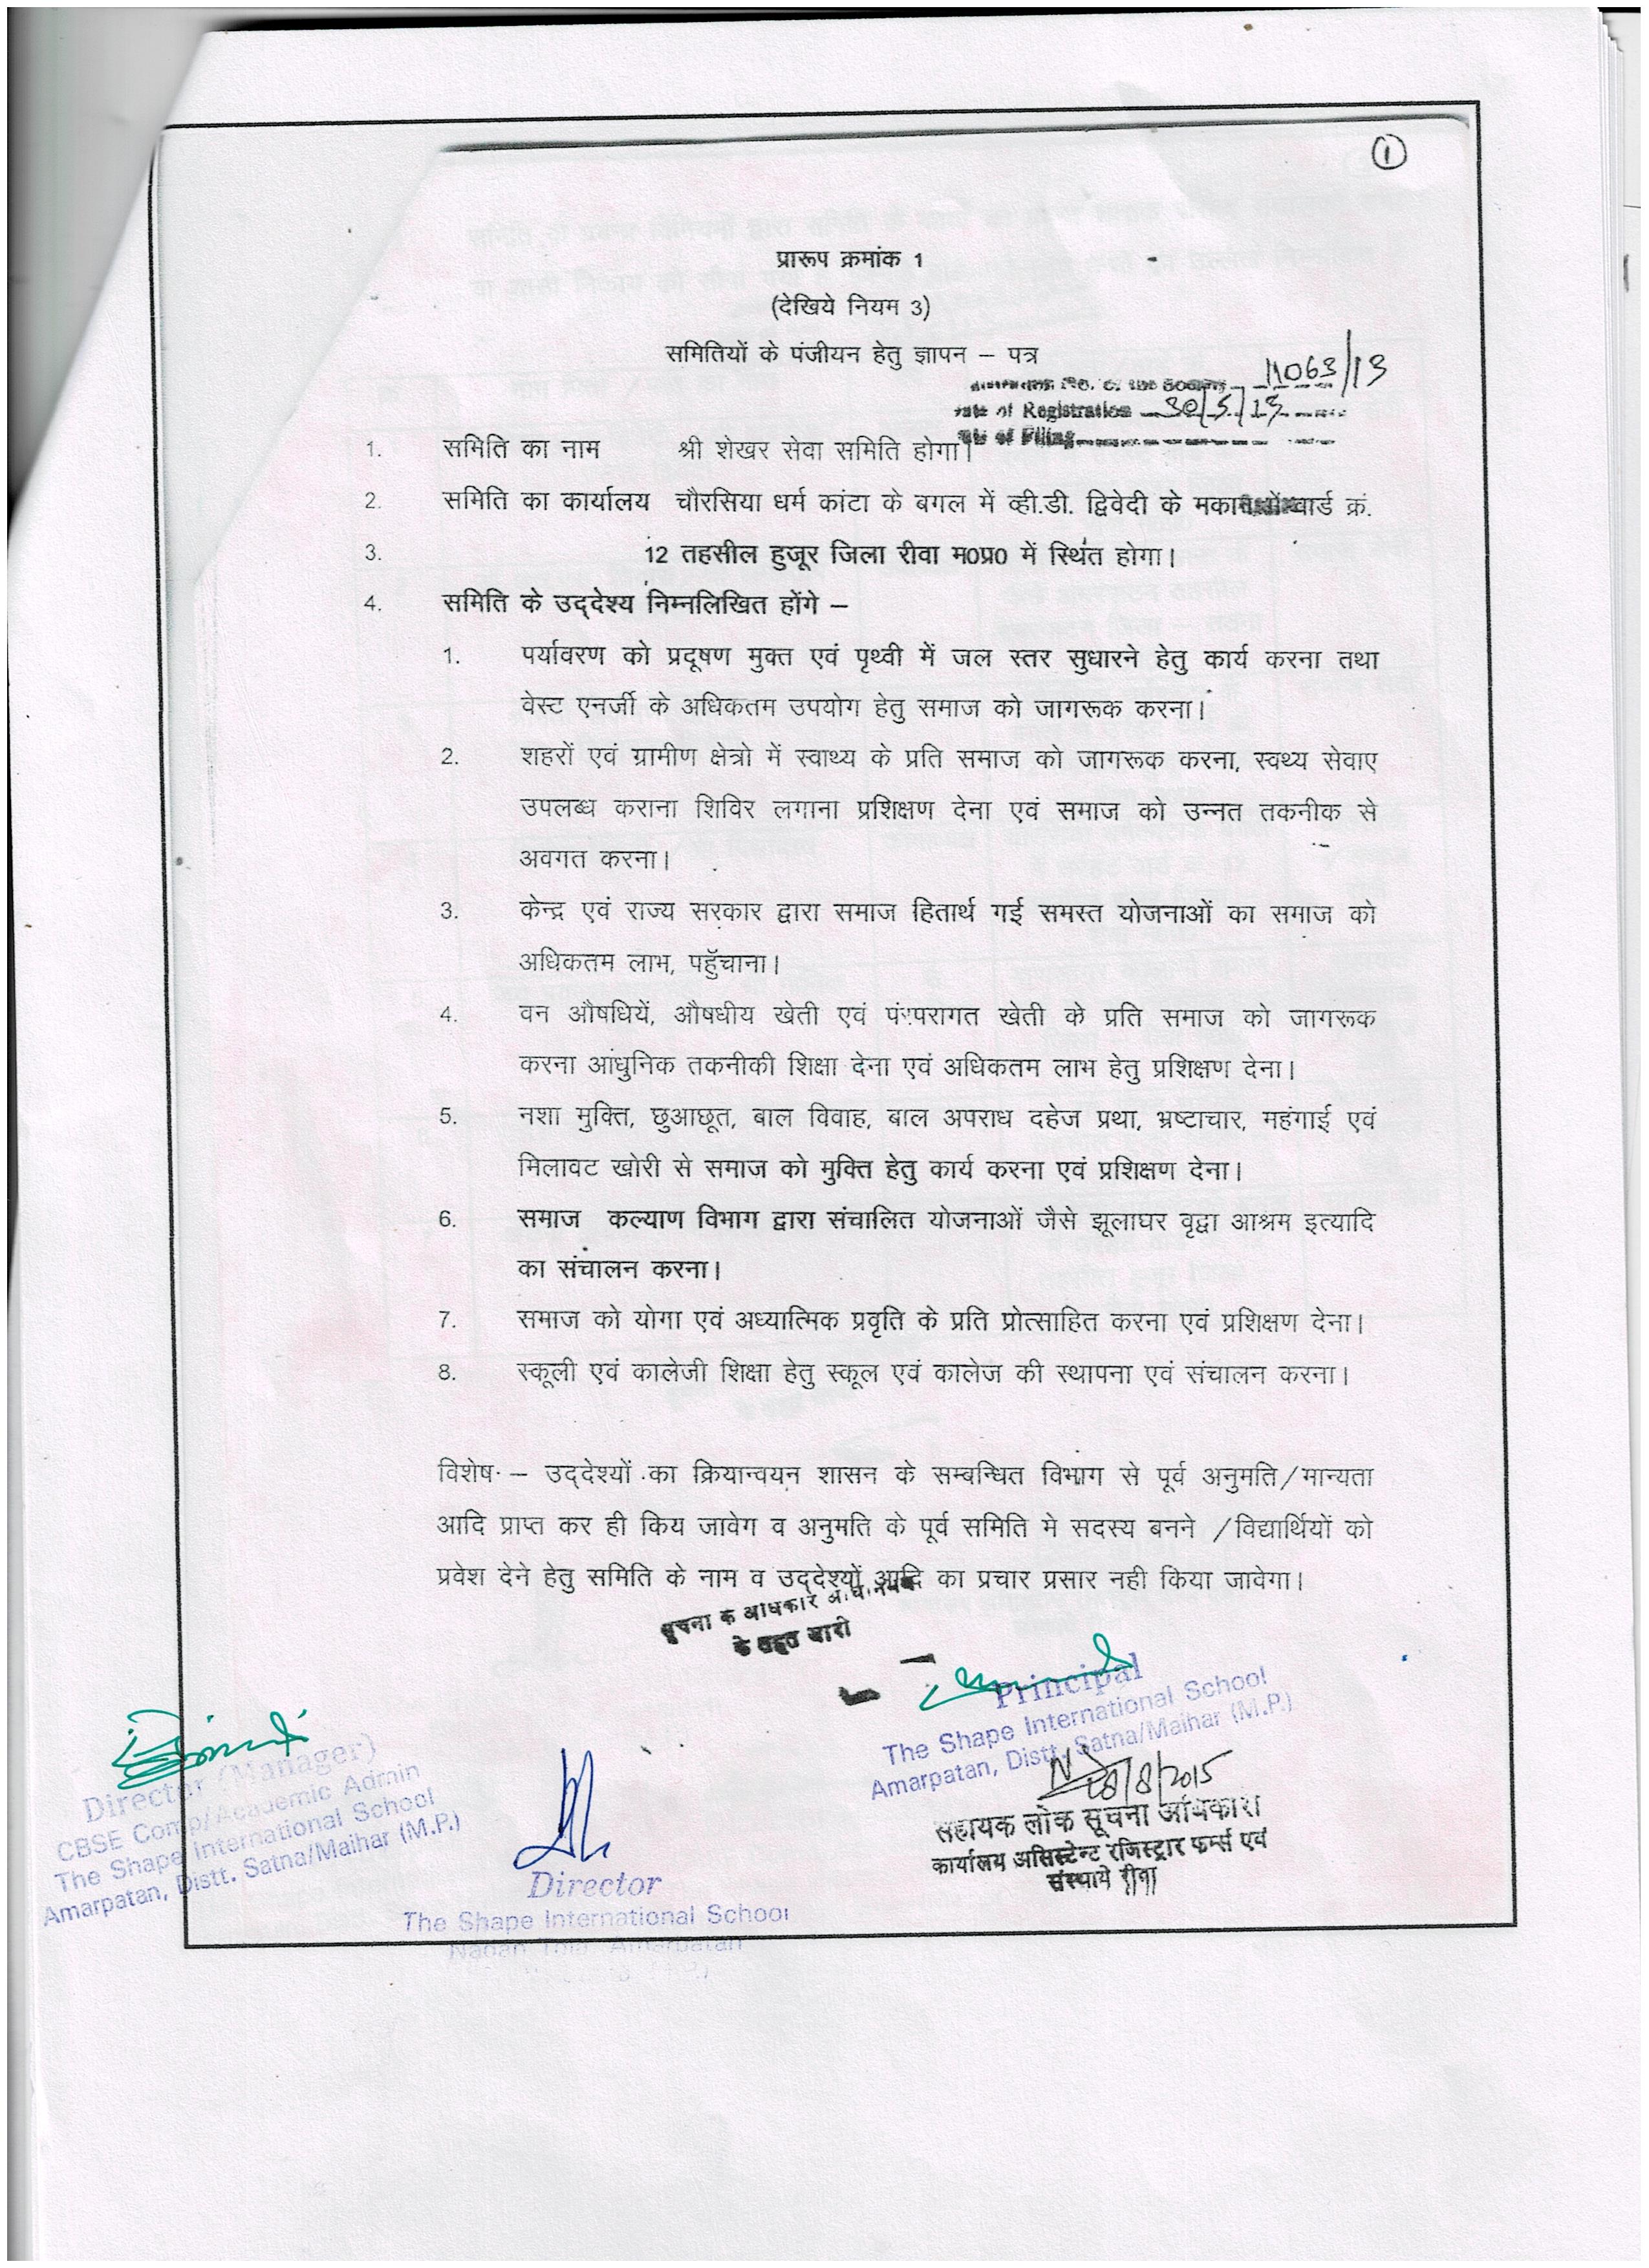 1
प्रारूप क्रमांक 1
(देखिये नियम 3)
समितियों के पंजीयन हेतु ज्ञापन – पत्र
No. of the 11063/13
of Registration 30/5/13
of Filing
1. समिति का नाम श्री शेखर सेवा समिति होगा।
2. समिति का कार्यालय चौरसिया धर्म कांटा के बगल में व्ही.डी. द्विवेदी के मकान वार्ड क्रं.
3. 12 तहसील हुजूर जिला रीवा म0प्र0 में स्थित होगा।
4. समिति के उद्‌देश्य निम्नलिखित होंगे –
1. पर्यावरण को प्रदूषण मुक्त एवं पृथ्वी में जल स्तर सुधारने हेतु कार्य करना तथा
वेस्ट एनर्जी के अधिकतम उपयोग हेतु समाज को जागरूक करना।
2. शहरों एवं ग्रामीण क्षेत्रो में स्वाथ्य के प्रति समाज को जागरूक करना, स्वथ्य सेवाए
उपलब्ध कराना शिविर लगाना प्रशिक्षण देना एवं समाज को उन्नत तकनीक से
अवगत करना।
3. केन्द्र एवं राज्य सरकार द्वारा समाज हितार्थ गई समस्त योजनाओं का समाज को
अधिकतम लाभ, पहुॅचाना।
4. वन औषधियें, औषधीय खेती एवं पंरपरागत खेती के प्रति समाज को जागरूक
करना आधुनिक तकनीकी शिक्षा देना एवं अधिकतम लाभ हेतु प्रशिक्षण देना।
5. नशा मुक्ति, छुआछूत, बाल विवाह, बाल अपराध दहेज प्रथा, भ्रष्टाचार, महंगाई एवं
मिलावट खोरी से समाज को मुक्ति हेतु कार्य करना एवं प्रशिक्षण देना।
6. समाज कल्याण विभाग द्वारा संचालित योजनाओं जैसे झूलाघर वृद्वा आश्रम इत्यादि
का संचालन करना।
7. समाज को योगा एवं अध्यात्मिक प्रवृति के प्रति प्रोत्साहित करना एवं प्रशिक्षण देना।
8. स्कूली एवं कालेजी शिक्षा हेतु स्कूल एवं कालेज की स्थापना एवं संचालन करना।
विशेष – उद्‌देश्यों का क्रियान्वयन शासन के सम्बन्धित विभाग से पूर्व अनुमति/मान्यता
आदि प्राप्त कर ही किय जावेग व अनुमति के पूर्व समिति मे सदस्य बनने /विद्यार्थियों को
प्रवेश देने हेतु समिति के नाम व उद्‌देश्यों आदि का प्रचार प्रसार नही किया जावेगा।
सूचना के अधिकार अधिनियम
के तहत जारी
Principal
The Shape International School
Amarpatan, Distt. Satna/Maihar (M.P.)
28/8/2015
सहायक लोक सूचना अधिकारी
कार्यालय असिस्टेन्ट रजिस्ट्रार फर्म्स एवं
संस्थाये रीवा
Director (Manager)
CBSE Comp/Academic Admin
The Shape International School
Amarpatan, Distt. Satna/Maihar (M.P.)
Director
The Shape International School
Amarpatan